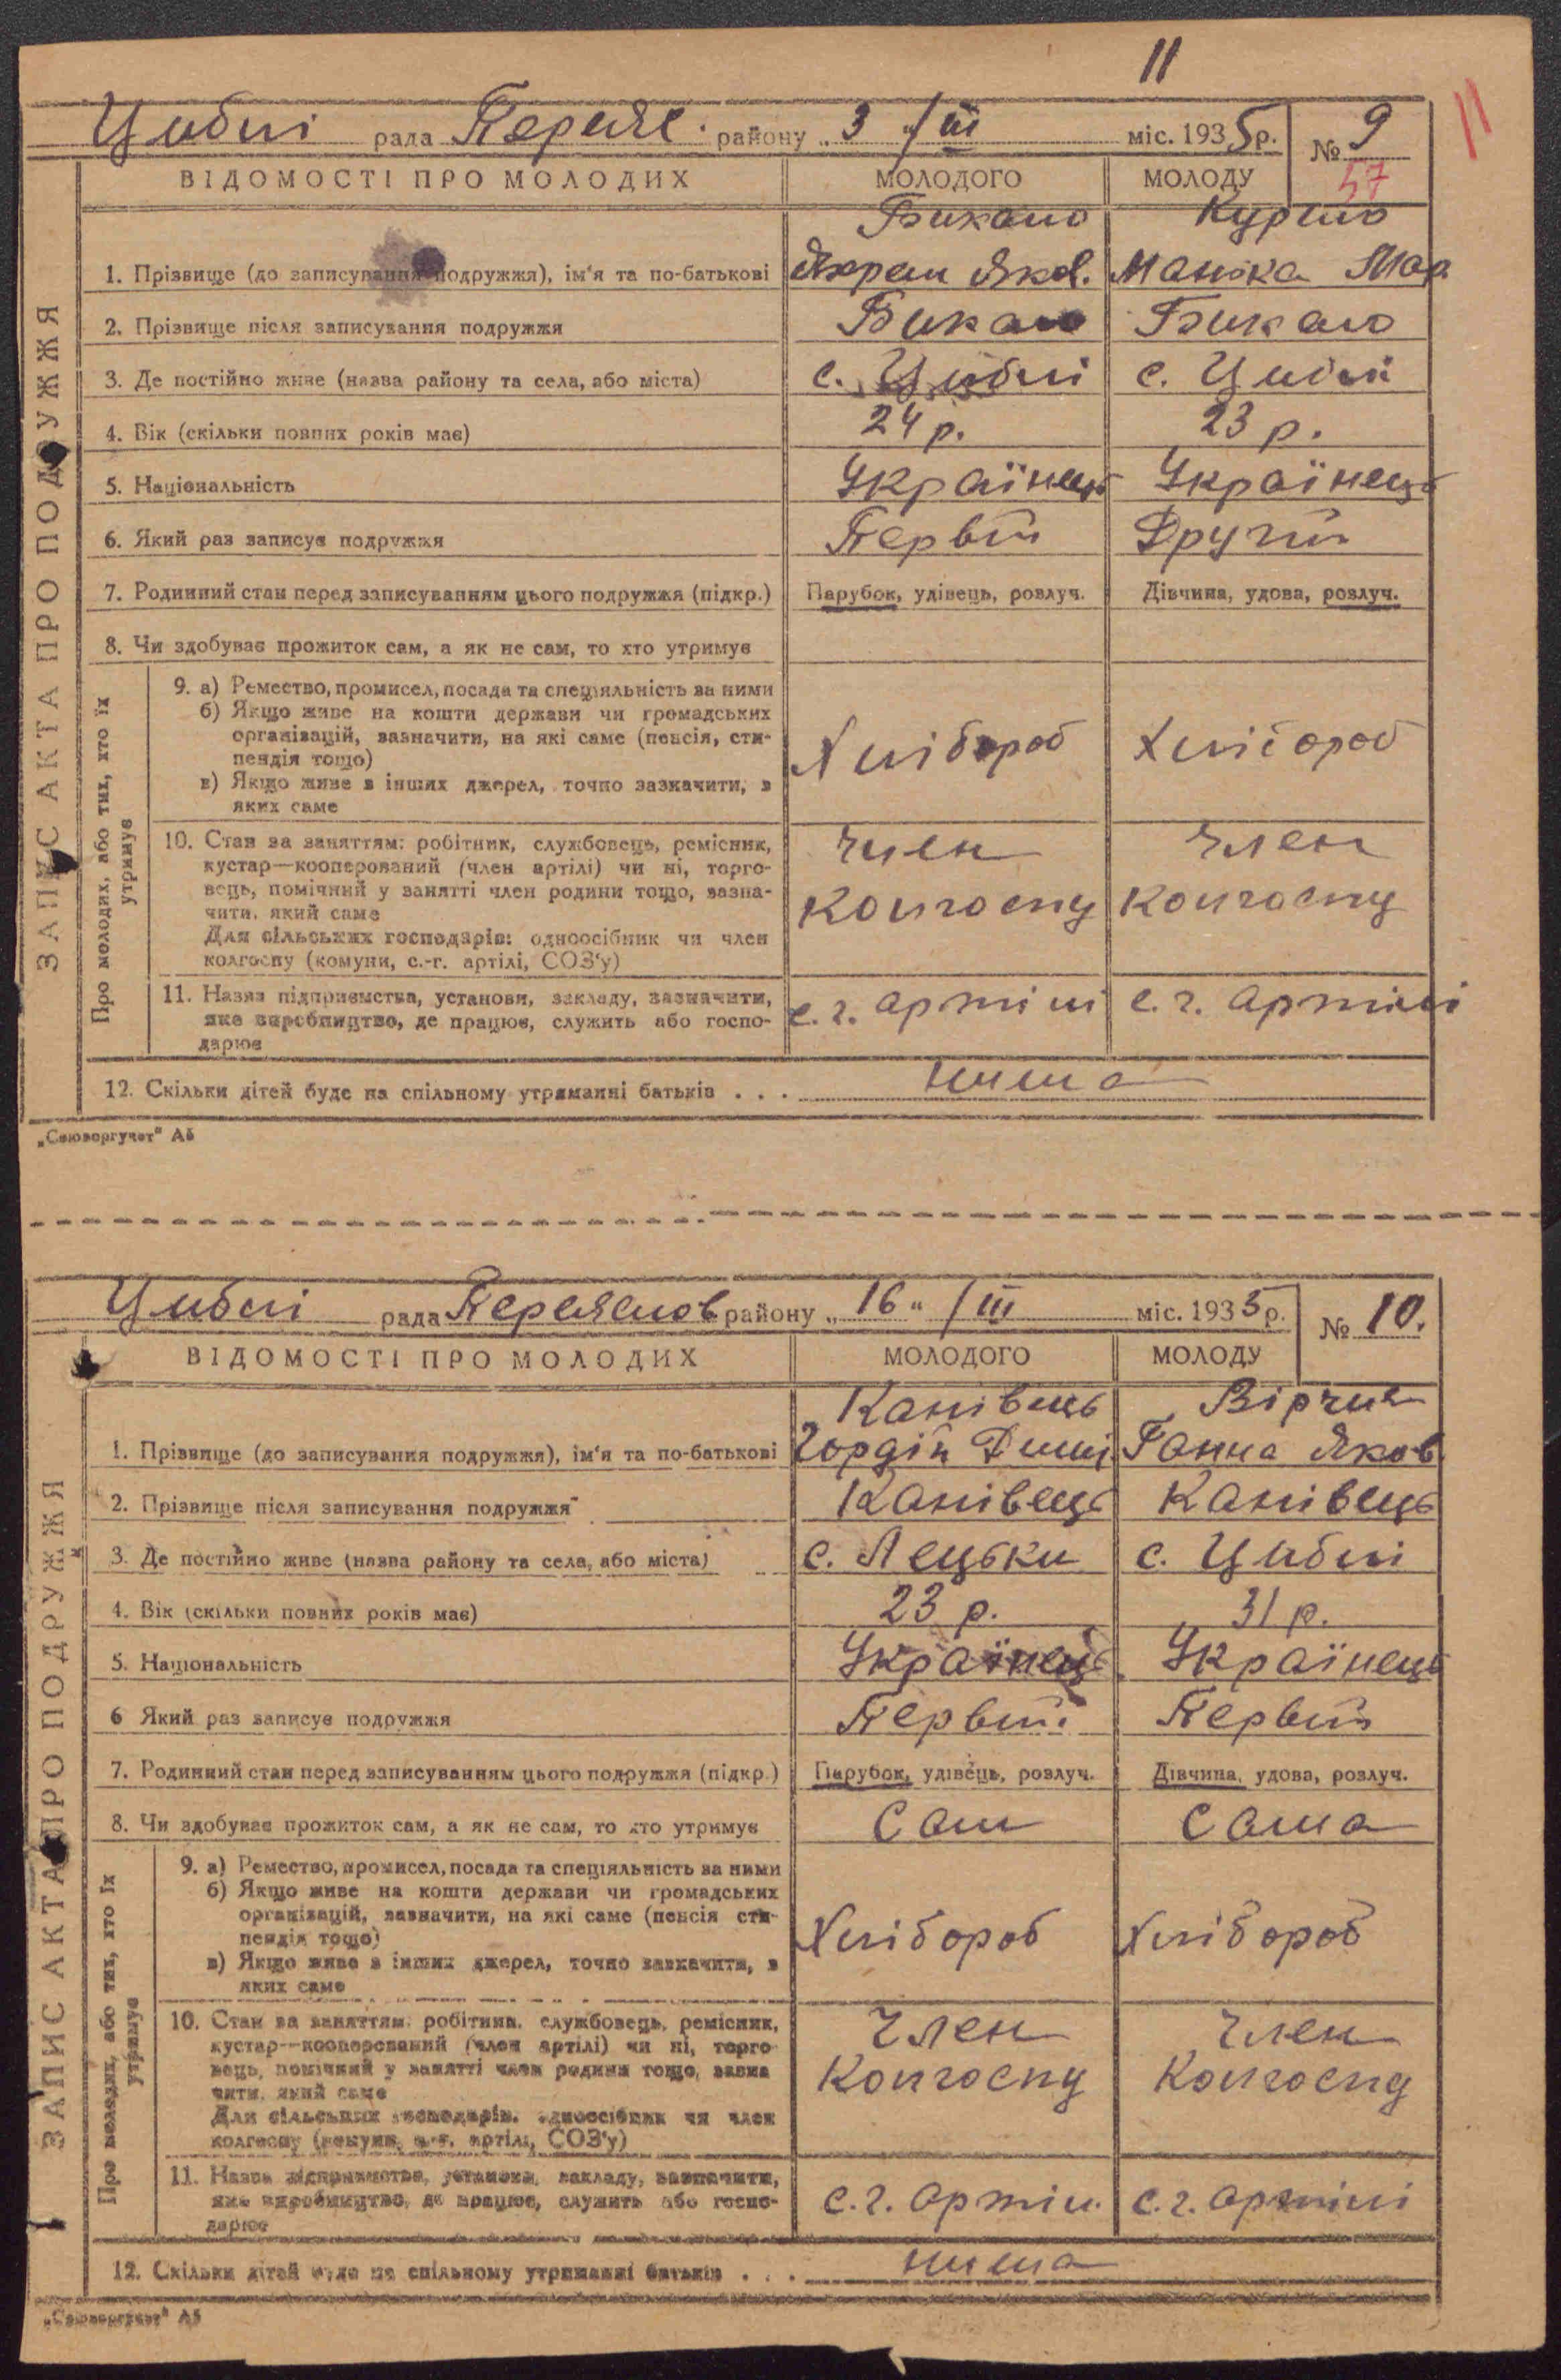 11
11
Циблі рада Переяс. району „ 3 " / III міс. 1935 р. № 9
57
ВІДОМОСТІ ПРО МОЛОДИХ МОЛОДОГО МОЛОДУ
ЗАПИС АКТА ПРО ПОДРУЖЖЯ
Бикало
1. Прізвище (до записування подружжя), ім'я та по-батькові Яков. Манька
2. Прізвище після записування подружжя Бикало Бикало
3. Де постійно живе (назва району та села, або міста) с. Циблі с. Циблі
4. Вік (скільки повних років має) 24 р. 23 р.
5. Національність Українець Українець
6. Який раз записує подружжя Первий Другий
7. Родинний стан перед записуванням цього подружжя (підкр.) Парубок, удівець, розлуч. Дівчина, удова, розлуч.
8. Чи здобуває прожиток сам, а як не сам, то хто утримує
Про молодих, або тих, хто їх утримує
9. а) Ремество, промисел, посада та спеціяльність за ними
б) Якщо живе на кошти держави чи громадських
організацій, зазначити, на які саме (пенсія, сти-
пендія тощо) Хлібороб Хлібороб
в) Якщо живе з інших джерел, точно зазначити, з
яких саме
10. Стан за заняттям: робітник, службовець, ремісник, член член
кустар—кооперований (член артілі) чи ні, торго-
вець, помічний у занятті член родини тощо, зазна- Колгоспу Колгоспу
чити, який саме
Для сільських господарів: одноосібник чи член
колгоспу (комуни, с.-г. артілі, СОЗ'у)
11. Назва підприємства, установи, закладу, зазначити, с. г. артілі с. г. артілі
яке виробництво, де працює, служить або госпо-
дарює
12. Скільки дітей буде на спільному утриманні батьків . . . нима
„Союзоргучет" А5
Циблі рада Переяслов району „ 16 " / III міс. 1935 р. № 10.
ВІДОМОСТІ ПРО МОЛОДИХ МОЛОДОГО МОЛОДУ
ЗАПИС АКТА ПРО ПОДРУЖЖЯ
Канівець
1. Прізвище (до записування подружжя), ім'я та по-батькові Гордій Ганна Яков
2. Прізвище після записування подружжя Канівець Канівець
3. Де постійно живе (назва району та села, або міста) с. Лецьки с. Циблі
4. Вік (скільки повних років має) 23 р. 31 р.
5. Національність Українець Українець
6 Який раз записує подружжя Первий Первий
7. Родинний стан перед записуванням цього подружжя (підкр.) Парубок, удівець, розлуч. Дівчина, удова, розлуч.
8. Чи здобуває прожиток сам, а як не сам, то хто утримує Сам Сама
Про молодих, або тих, хто їх утримує
9. а) Ремество, промисел, посада та спеціяльність за ними
б) Якщо живе на кошти держави чи громадських
організацій, зазначити, на які саме (пенсія сти-
пендія тощо) Хлібороб Хлібороб
в) Якщо живе з інших джерел, точно зазначити, з
яких саме
10. Стан за заняттям: робітник, службовець, ремісник, Член член
кустар—кооперований (член артілі) чи ні, торго-
вець, помічний у занятті член родини тощо, зазна Колгоспу Колгоспу
чити, який саме
Для сільських господарів. одноосібник чи член
колгоспу (комуни, с.-г. артілі, СОЗ'у)
11. Назва підприємства, установи, закладу, зазначити,
яке виробництво, де працює, служить або госпо- с. г. артіл. с. г. артілі
дарює
12. Скільки дітей буде на спільному утриманні батьків . . . нима
„Союзоргучет" А5